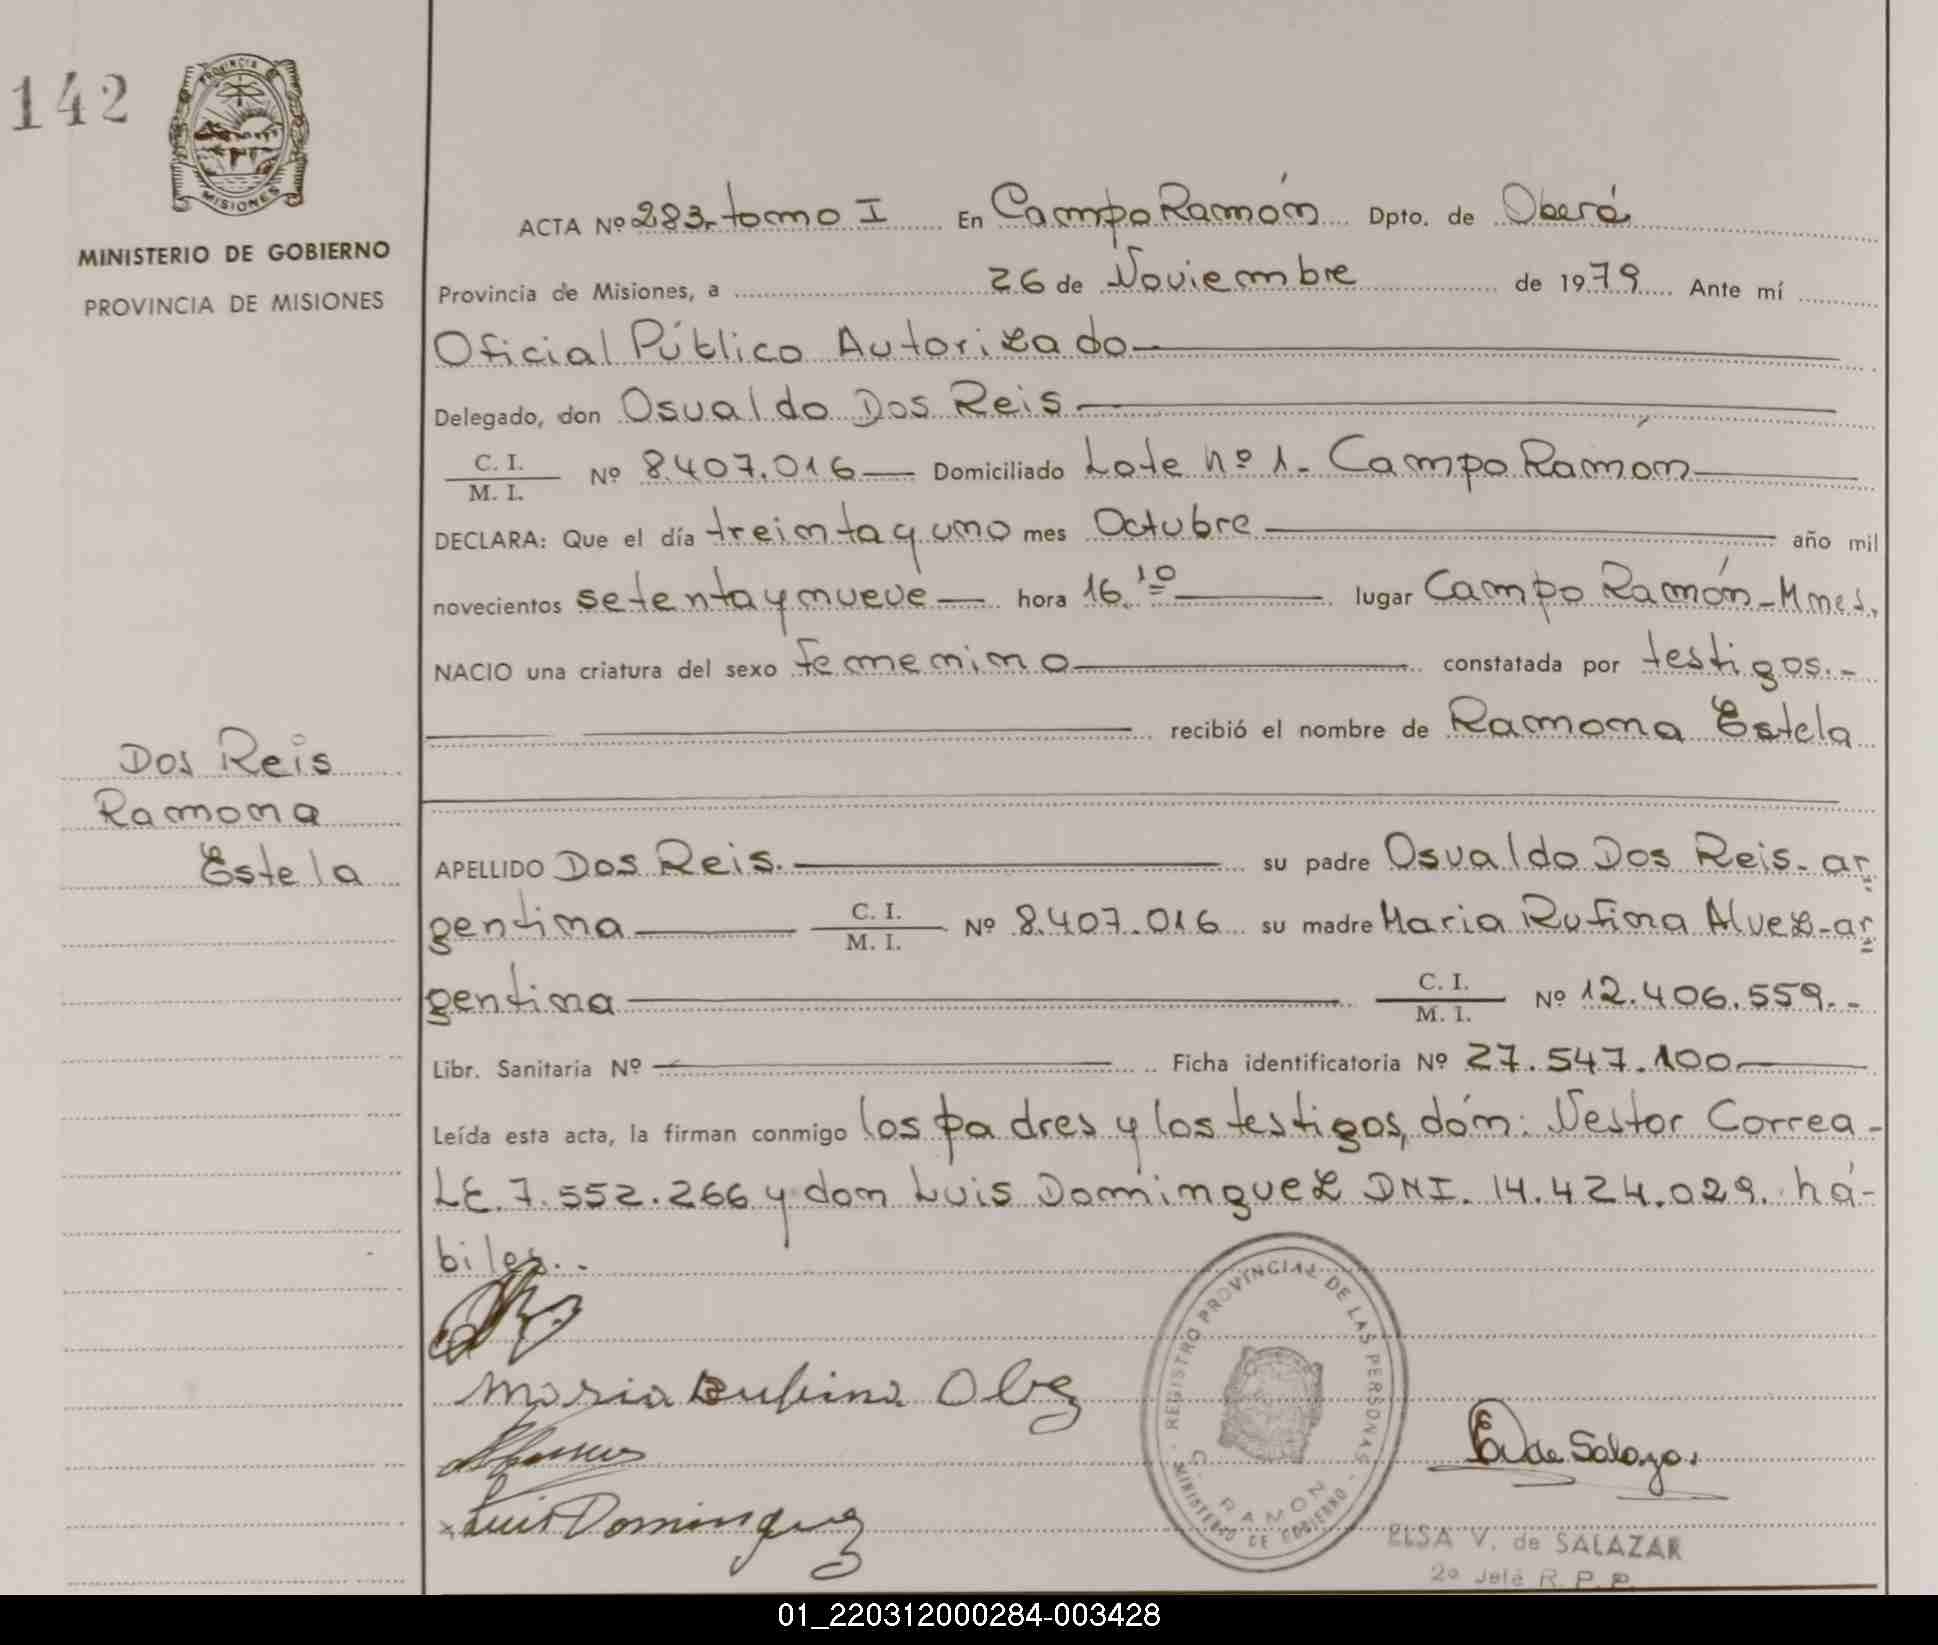 142
PROVINCIA DE
MISIONES
MINISTERIO DE GOBIERNO
PROVINCIA DE MISIONES
ACTA Nº 283. tomo I En Campo Ramón Dpto. de Oberá
Provincia de Misiones, a 26 de Noviembre de 1979 Ante mí
Oficial Público Autorizado
Delegado, don Osvaldo Dos Reis
C. I. / M. I. Nº 8.407.016 Domiciliado Lote nº 1. Campo Ramón
DECLARA: Que el día treinta y uno mes Octubre año mil
novecientos setenta y nueve hora 16.10 lugar Campo Ramón - Mnes.
NACIO una criatura del sexo femenino constatada por testigos.-
recibió el nombre de Ramona Estela
Dos Reis
Ramona
Estela
APELLIDO Dos Reis. su padre Osvaldo Dos Reis - ar
gentina C. I. / M. I. Nº 8.407.016 su madre Maria Rufina Alvez - ar
gentina C. I. / M. I. Nº 12.406.559.-
Libr. Sanitaria Nº Ficha identificatoria Nº 27.547.100
Leída esta acta, la firman conmigo los padres y los testigos, dón: Nestor Correa -
LE. 7.552.266 y don Luis Dominguez DNI. 14.424.029. há-
biles..
Maria Rufina Olbez
Luis Dominguez
REGISTRO PROVINCIAL DE LAS PERSONAS
C. RAMON
MINISTERIO DE GOBIERNO
E V de Salazar
ELSA V. de SALAZAR
2º Jefe R. P. P.
01_220312000284-003428